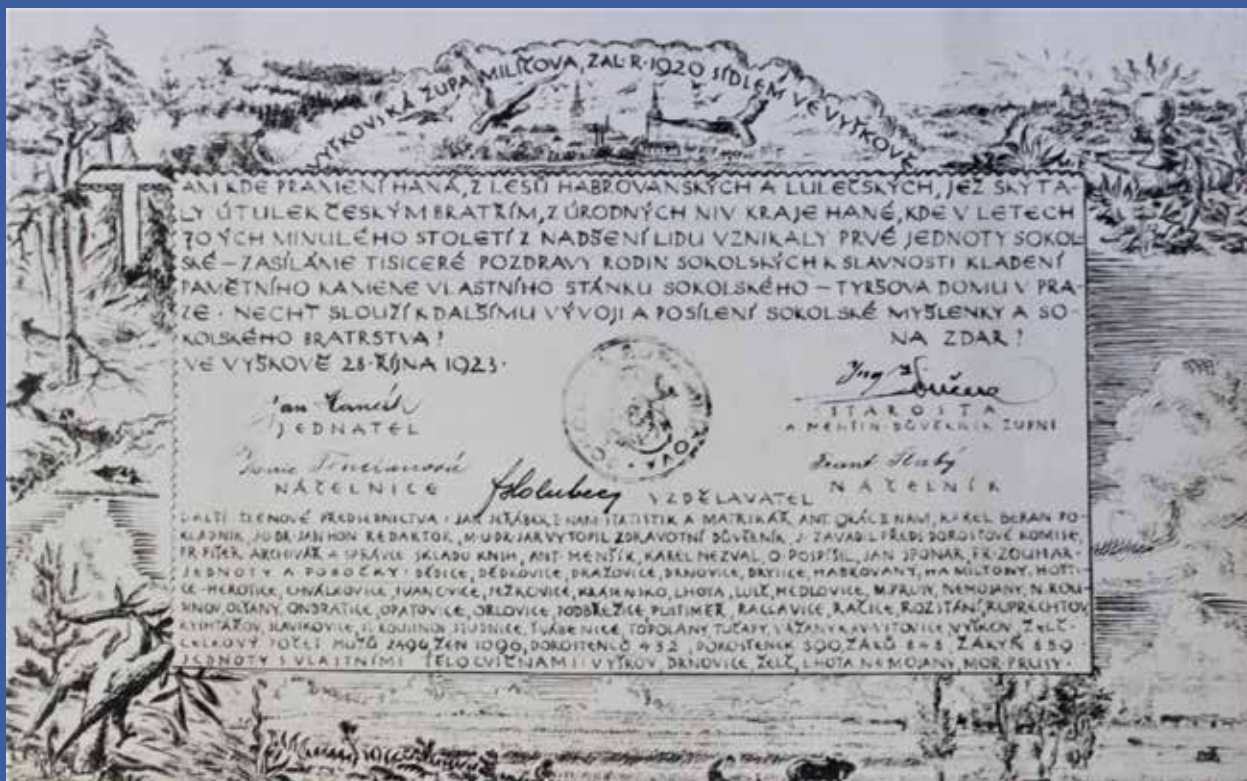 VYŠKOVSKÁ ŽUPA MILÍČOVA, ZAL. R. 1920 SÍDLEM VE VYŠKOVĚ
TAM KDE PRAMENÍ HANÁ, Z LESŮ HABROVANSKÝCH A LULEČSKÝCH, JEŽ SKÝTA-
LY ÚTULEK ČESKÝM BRATŘÍM, Z ÚRODNÝCH NIV KRAJE HANÉ, KDE V LETECH
70 ÝCH MINULÉHO STOLETÍ Z NADŠENÍ LIDU VZNIKALY PRVÉ JEDNOTY SOKOL
SKÉ – ZASÍLÁME TISICERÉ POZDRAVY RODIN SOKOLSKÝCH K SLAVNOSTI KLADENÍ
PAMĚTNÍHO KAMENE VLASTNÍHO STÁNKU SOKOLSKÉHO – TYRŠOVA DOMU V PRA-
ZE · NECHŤ SLOUŽÍ K DALŠÍMU VÝVOJI A POSÍLENÍ SOKOLSKÉ MYŠLENKY A SO-
KOLSKÉHO BRATRSTVA! NA ZDAR!
VE VYŠKOVĚ 28· ŘÍJNA 1923·
Jan
Ing
JEDNATEL
STAROSTA
A MENŠIN· DŮVĚRNÍK ŽUPNÍ
Frant Slabý
NÁČELNICE
Holubec
VZDĚLAVATEL
NÁČELNÍK
DALŠÍ ČLENOVÉ PŘEDSEDNICTVA: JAN JEŘÁBEK STATISTIK A MATRIKÁŘ, ANT. KAREL BERAN PO
KLADNÍK, JUDR JAN HON REDAKTOR, MUDR JAR VYTOPIL ZDRAVOTNÍ DŮVĚRNÍK, J. ZAVADIL PŘEDS DOROSTOVÉ KOMISE,
FR PITER ARCHIVÁŘ A SPRÁVCE SKLADU KNIH, ANT. MENŠÍK, KAREL NEZVAL, O. POSPÍŠIL, JAN SPONAR, FR. ZOUHAR·
JEDNOTY A POBOČKY: DĚDICE, DĚDKOVICE, DRAŽOVICE, DRNOVICE, HABROVANY, HAMILTONY, HOŠTI
CE-HEROTICE, CHVÁLKOVICE, IVANOVICE, JEŽKOVICE, KRÁSENSKO, LHOTA, LULČ, MEDLOVICE, M. PRUSY, NEMOJANY, N. ROU
SÍNOV, OLŠANY, ONDRATICE, OPATOVICE, ORLOVICE, PODBŘEŽICE, PUSTIMĚŘ, RACLAVICE, RAČICE, ROZSTÁNÍ, RUPRECHTOV,
RYCHTÁŘOV, SLAVÍKOVICE, STUDNICE, ŠVÁBENICE, TOPOLANY, TUČAPY, VÍTOVICE, VYŠKOV, ŽELČ·
CELKOVÝ POČET MUŽŮ 2496, ŽEN 1096, DOROSTENCŮ 432, DOROSTENEK 390, ŽÁKŮ 848, ŽÁKYŇ 889·
JEDNOTY S VLASTNÍMI TĚLOCVIČNAMI: VYŠKOV, DRNOVICE, ŽELČ, LHOTA, NEMOJANY, MOR. PRUSY·